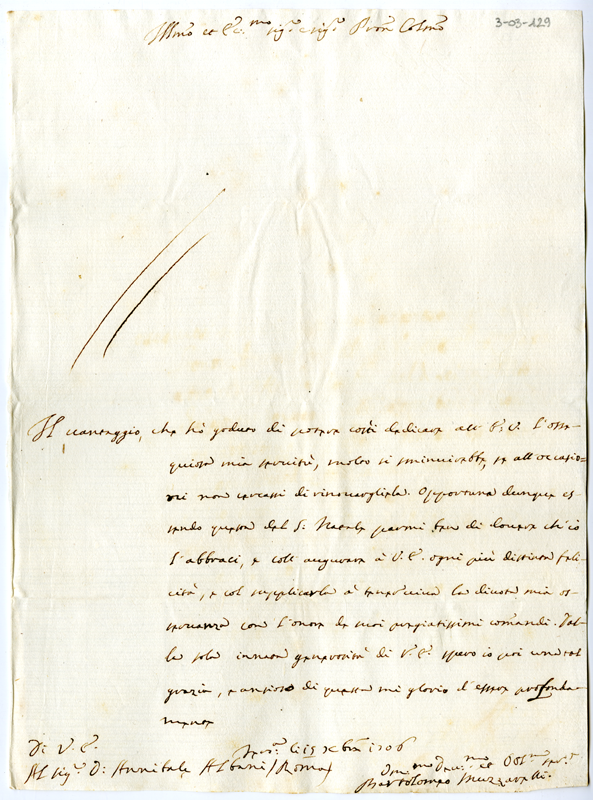 3-03-129
Illmo et Ecc.mo Sig.r e Sig.r Pron Colmo
Il vantaggio, che hò goduto di potere costì dedicare all' V.E. l'osse-
quiosa mia servitù, molto si sminuirebbe, se all'occasio=
ni non cercassi di rinovargliela. Opportuna dunque es-
sendo questa del S. Natale parmi ben di dovere ch'io
l'abbracci, e coll' augurare à V.E. ogni più distinta feli-
cità, e col supplicarla à tener viva la divota mia os-
servanza con l'onore de suoi pregiatissimi comandi. Dal-
la sola innata generosità di V.E. spero io poi una tal
grazia, e ansioso di questa mi glorio d'esser profonda-
mente
Di V.E.
li 15 Xbre 1706
Al Sig.r D. Annibale Albani / Roma
Dev.mo et Obl.mo Ser.re
Bartolomeo